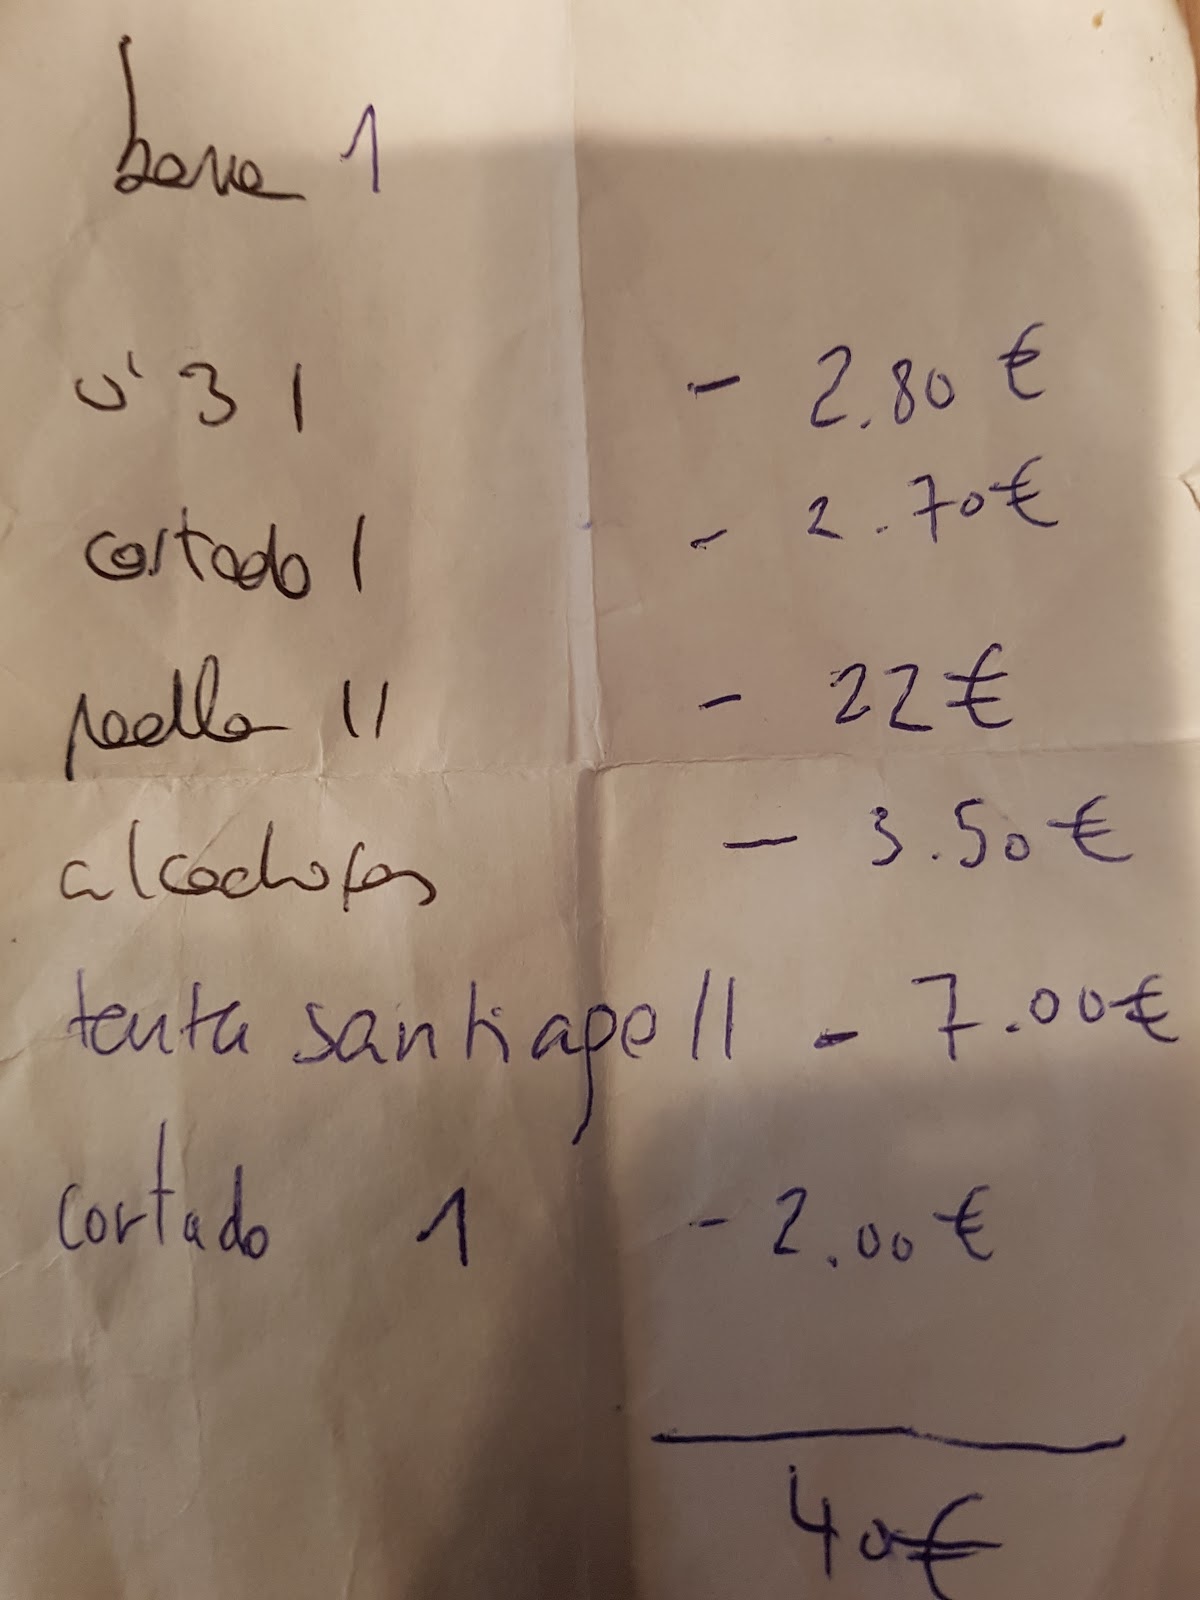 barra 1
v' 3 | - 2.80 €
cortado | - 2.70 €
paella || - 22 €
alcachofas - 3.50 €
tarta santiago || - 7.00 €
cortado 1 - 2.00 €
40 €